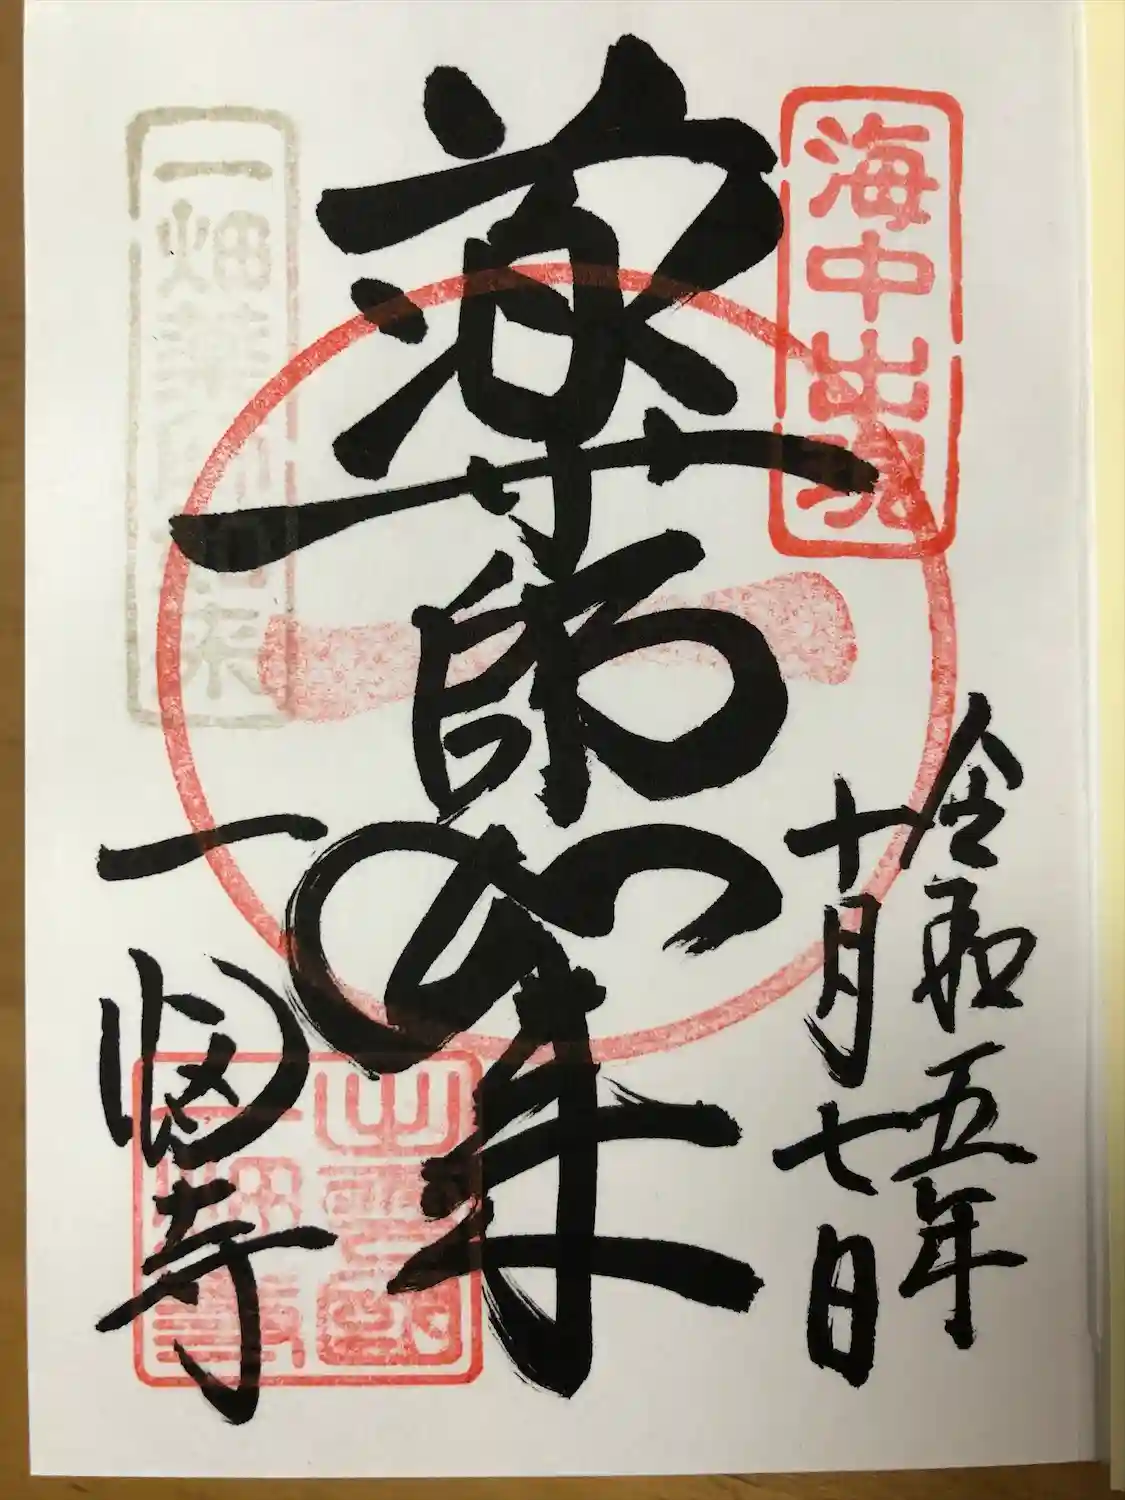 海中出現
令和五年
十月七日
薬師如来
一畑薬師如来
一畑寺
出雲國
一畑寺